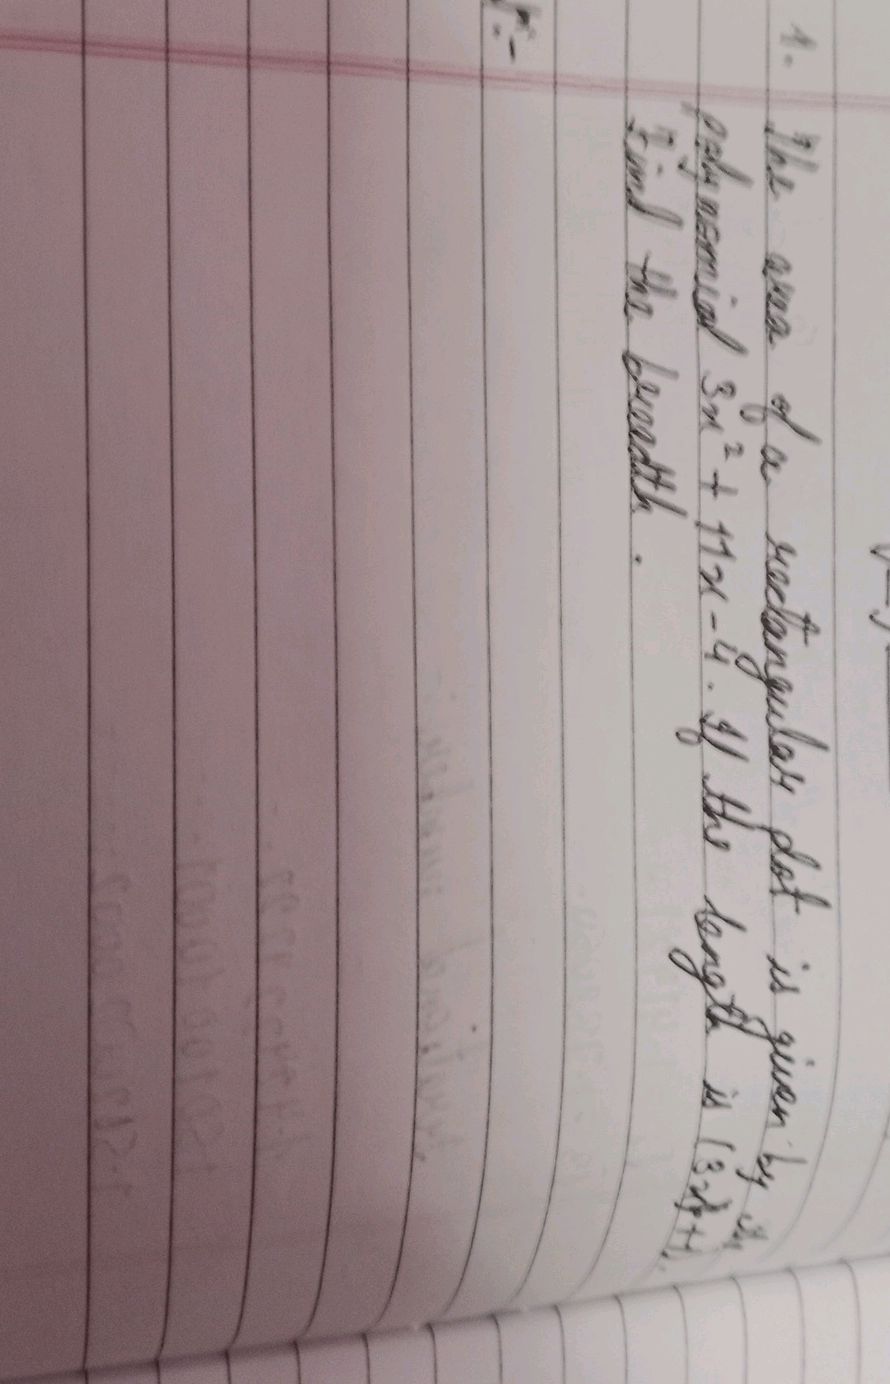 1. The area of a rectangular plot is given by the
polynomial 3x² + 11x - 4. If the length is (3x + 1)
Find the breadth.